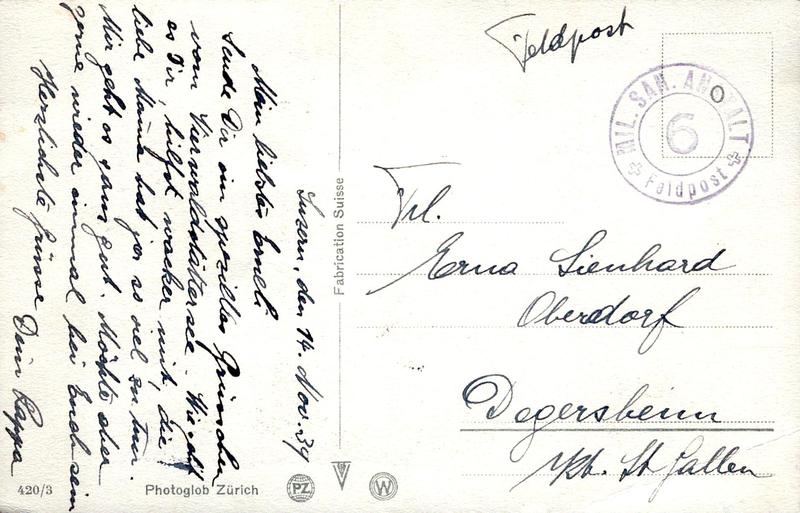 Luzern, den 14. Nov. 39
Mein liebstes Erneli
Sende Dir ein spezielles Grüsschen
vom Vierwaldstättersee. Wie geht
es Dir, hilfst wacker mit, die
liebe Mama hat ja so viel zu tun.
Mir geht es ganz gut. Möchte aber
gerne wieder einmal bei Euch sein
Herzlichste Grüsse
Dein Pappa
420/3
Photoglob Zürich
PZ
W
Fabrication Suisse
Feldpost
MIL. SAN. ANSTALT
6
Feldpost
Frl.
Erna Lienhard
Oberdorf
Degersheim
Kt. St Gallen